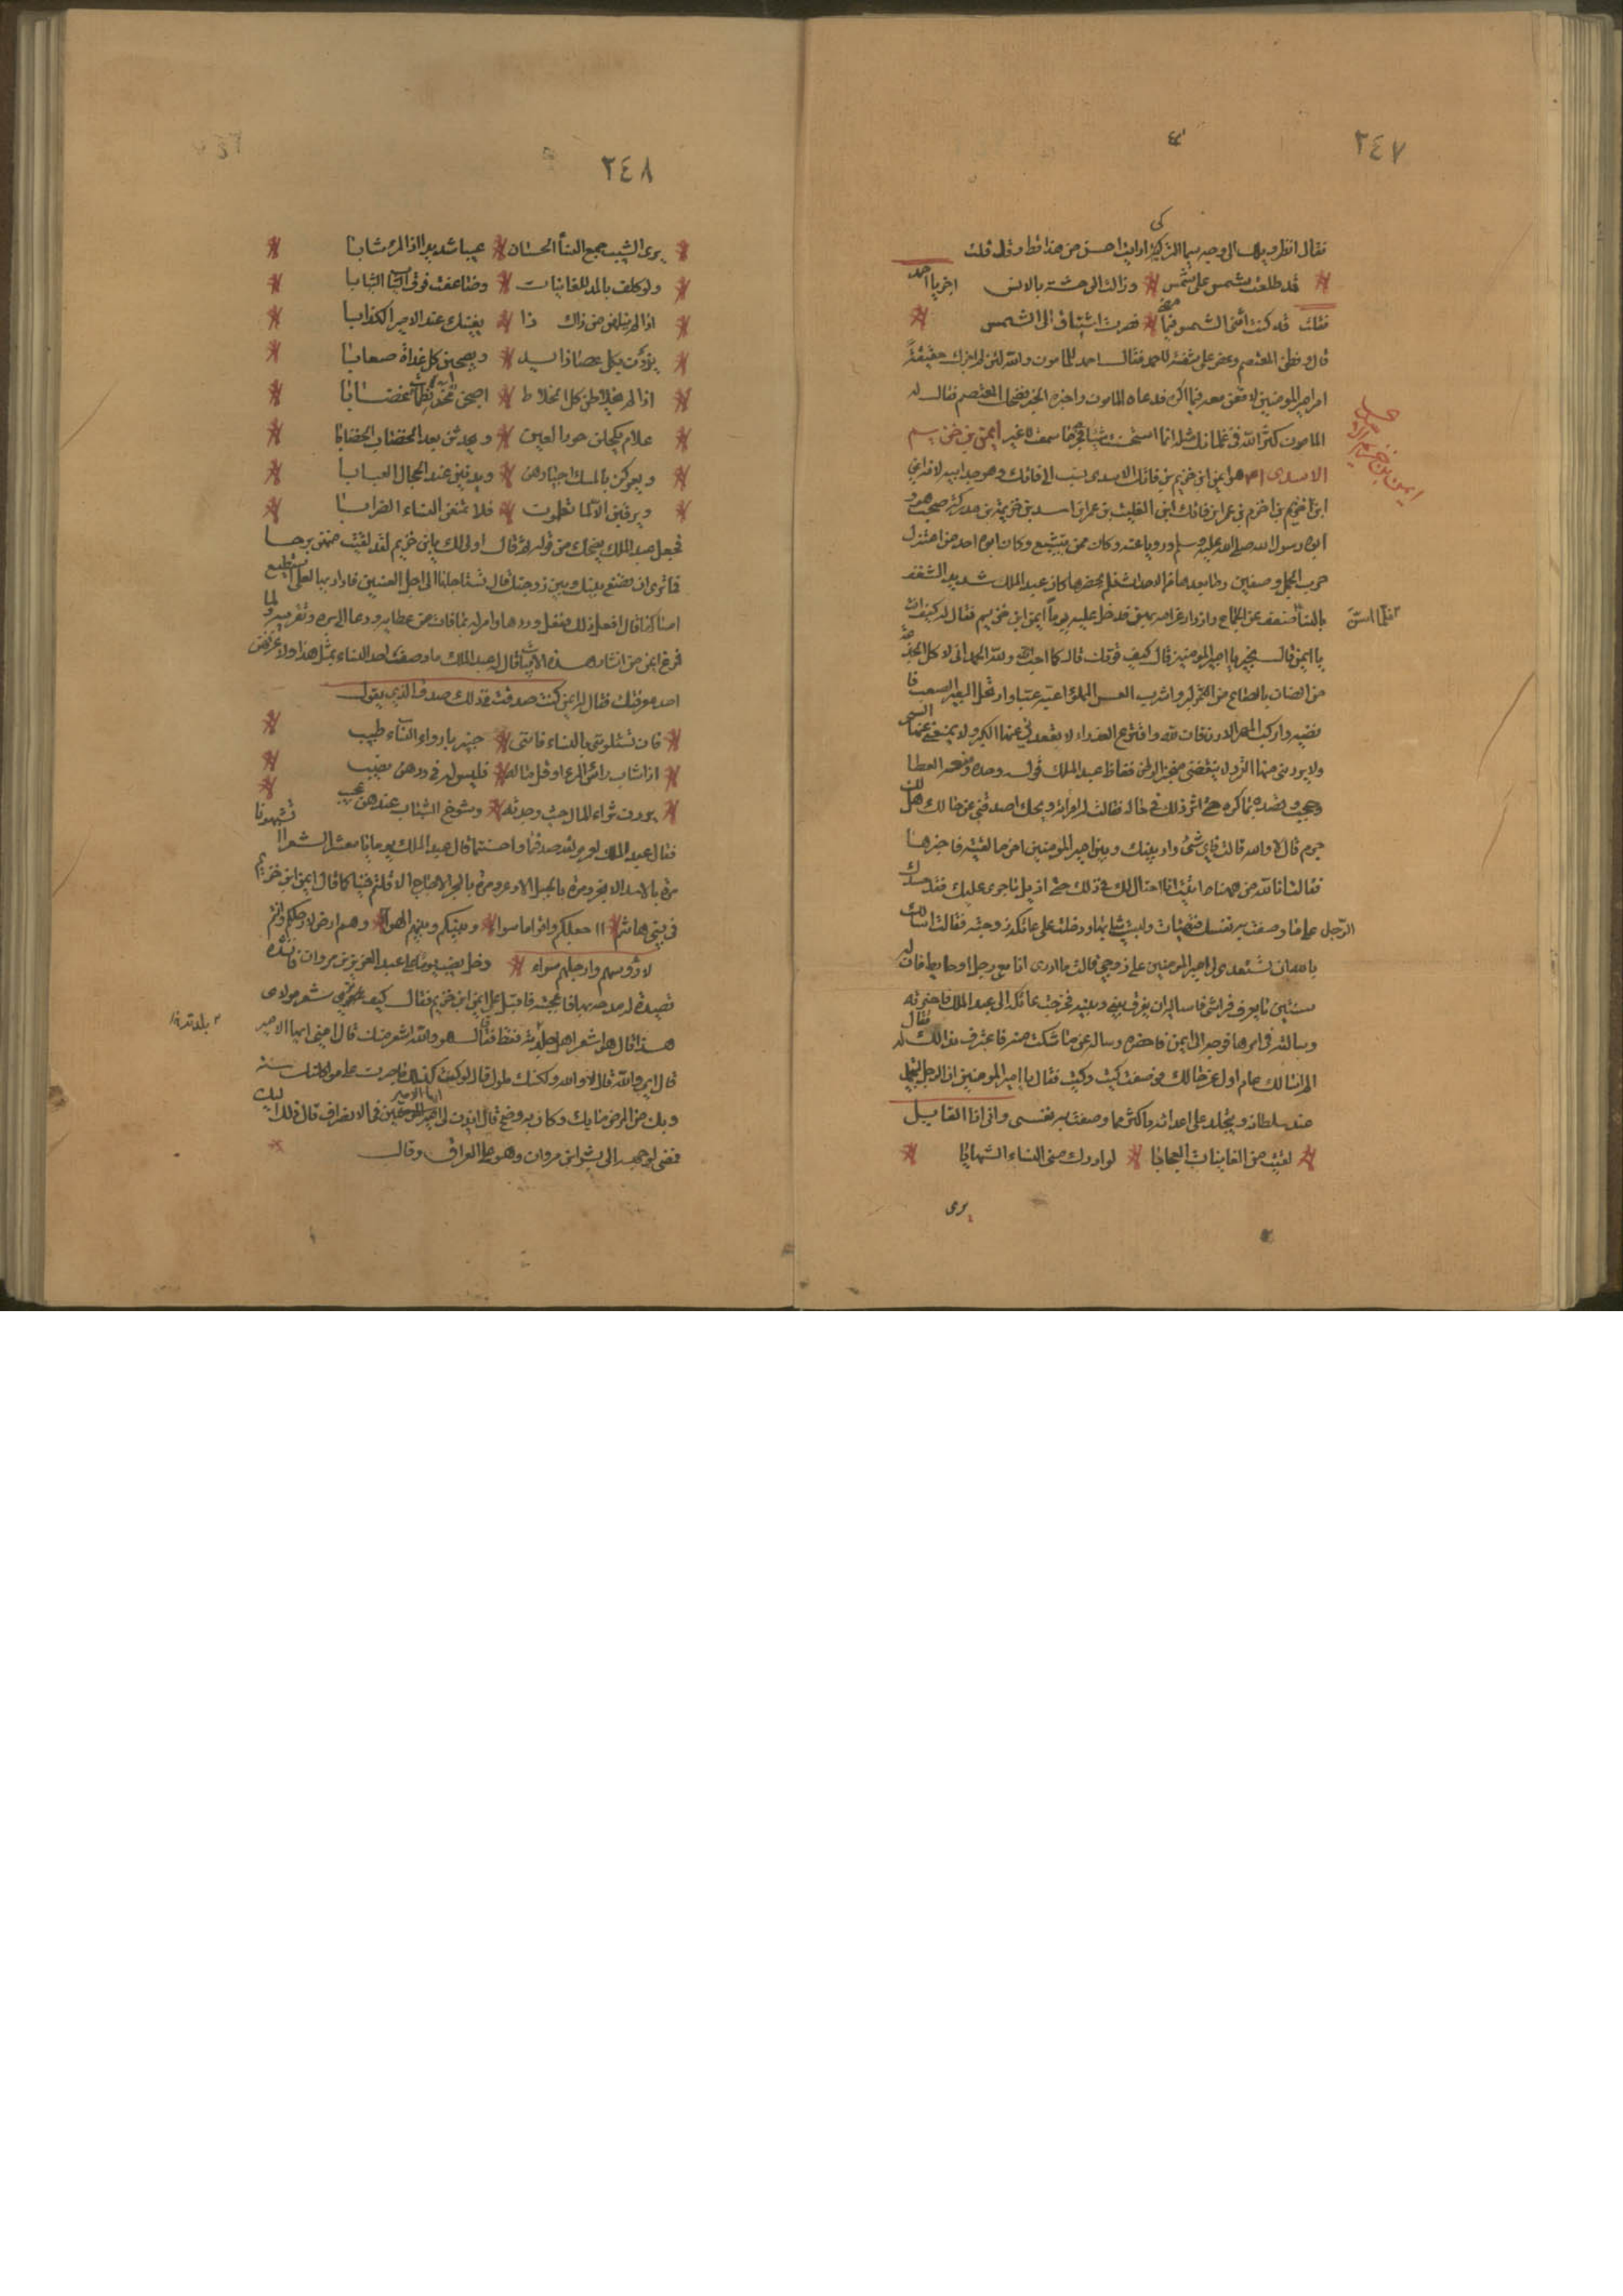 ٢٤٧
فقال انظر ويلك الى وجه سيما التركي ارايت احسن من هذا قط وقد قلت
قد طلعت شمس على شمس * وزالت الوحشة بالانس اجز يا احمد
فقلت قد كنت اشنى الشمس فيما مضى * فصرت اشتاق الى الشمس
قال وفطن المعتصم وعض على شفته لاحمد فقال احمد للمامون والله لئن لم يعرف حقيقة
امر امير المومنين لاقعن معه فيما اكره فدعاه المامون واخبره الخبر فضحك المعتصم فقال له
المامون كثر الله في غلمانك مثله انما استحسنت شيا فجرى ما سمعت لا غير ايمن بن خريم
الاسدى هو ايمن ابن خريم بن فاتك الاسدى ينسب الى فاتك وهو جد ابيه لانه ايمن
ابن خريم بن اخرم بن عمر ابن فاتك ابن القليب بن عمر ابن اسد بن خزيمة بن مدركة صحب هو و
ابوه رسول الله صلى الله عليه وسلم ورويا عنه وكان ممن يتشيع وكان ابوه احد من اعتزل
حرب الجمل وصفين وما بعدهما من الاحداث فلم يحضرها كان عبد الملك شديد الشغف
بالنسا فضعف عن الجماع وازداد غرامه بهن فدخل عليه يوما ايمن ابن خريم فقال له كيف انت
فلما اسن
يا ايمن قال بخير يا امير المومنين قال كيف قوتك قال كما احب ولله الحمد انى لاكل الجذعة
من الضان بالصاع من البر واشرب العس المملو اعبه عبا وارتحل البعير الصعب فا
نضيه واركب المهر الارن فاذلله وافترع العذراء لا يقعدنى عنها الكبر ولا يمنعنى عنها السن
ولا يردنى منها الغرو لا ينقضى منى الوطر فغاظ عبد الملك قوله وحسده فمنعه العطا
وحجبه وقصده بما كره حتى اثر ذلك في حاله فقالت له امراته ويحك اصدقنى عن حالك هل لك
جرم قال لا والله قالت فاى شئ دار بينك وبين امير المومنين اخر ما لقيته فاخبرها
فقالت انا لله من ههنا اتيت انا احتال لك في ذلك حتى ازيل ما جرى عليك فقد حسدك
الرجل على ما وصفت به نفسك فتهيات ولبست ثيابها ودخلت على عاتكة زوجته فقالت اسالك
بالله ان تستعدى لى امير المومنين على زوجى قالت ما ادرى انا مع رجل او حايط فان له
سنتين ما يعرف فراشى فاساليه ان يفرق بينى وبينه فخرجت عاتكة الى عبد الملك فاخبرته
وسالته في امرها فوجه الى ايمن فاحضره وساله عن ما شكت منه فاعترف به فقال
الم اسالك عام اول عن حالك فوصفت كيت وكيت فقال يا امير المومنين ان الرجل يتجمل
عند سلطانه ويتجلد على اعدائه باكثر مما وصفت به نفسى وانى انا القايل
لقيت من الغانيات العجابا * لو ادرك منى النساء الشبابا
يرى
٢٤٨
يرى الشيب جمع النسا الحسان * عيبا شديدا اذا المرء شابا
ولو كلت بالمد للغانيات * وضاعفت فوق الثياب الثيابا
اذا لم ينلهن من ذاك ذا * بغينك عند الامير الكذابا
يذدن بكل عصا ذايد * ويصبحن كل غداة صعابا
اذا لم يخالطن كل الخلاط * اصبحن مخرنطمات غضابا
علام يكحلن حور العيون * ويحدثن بعد الخضاب الخضابا
ويعركن بالمسك اجيادهن * ويدنين عند الحجال العيابا
ويبرقن الا لما تعلمون * فلا تمنعن النساء الضرابا
فجعل عبد الملك يضحك من قوله ثم قال اولى لك يا ابن خريم لقد لقيت منهن برحا
فما ترى ان نصنع بينك وبين زوجتك قال تستاجلها الى اجل العنين فاداريها لعلى استطيع
امساكها قال افعل ذلك ففعل وردها وامر له بما فات من عطايه وعاد الى بره وتقريبه ولما
فرغ ايمن من انشاد هذه الابيات قال له عبد الملك ما وصف احد النساء بمثل هذا ولا عرفهن
احد معرفتك فقال له ايمن كنت صدقت فذلك صدق الذى يقول
فان تسئلونى بالنساء فاننى * خبير بادواء النساء طبيب
اذا شاب راس المرء او قل ماله * فليس له في ودهن نصيب
يردن ثراء المال حيث وجدنه * وشرخ الشباب عندهن عجيب
فقال عبد الملك لعمرى لقد صدقتما واحسنتما قال عبد الملك يوما يا معشر الشعرا تشبهونا
مرة بالاسد الابخر ومرة بالجبل الاوعر ومرة بالبحر الاجاج الا قلتم فينا كما قال ايمن ابن خريم
في بنى هاشم * ااجعلكم واقواما سواء * وبينكم وبينهم الهواء * وهم ارض لارجلكم وانتم
لارؤسهم وارجلهم سماء * ودخل نصيب يوما على عبد العزيز بن مروان فانشده
قصيدة له مدحه بها فاعجبته فاقبل على ايمن ابن خريم فقال كيف ترى شعر مولاى
هذا قال هو اشعر اهل جلدته فقط فقال هو والله اشعر منك قال امنى ايها الامير
قال اى والله قال لا والله ولكنك طرف ملول قال لو كنت كذلك ما صبرت على مواكلتك سنة
وبك من البرص ما بك وكان به وضح قال ايذن لى ايها الامير في الانصراف قال ذلك اليك
فمضى لوجهه الى بشر ابن مروان وهو على العراق وقال